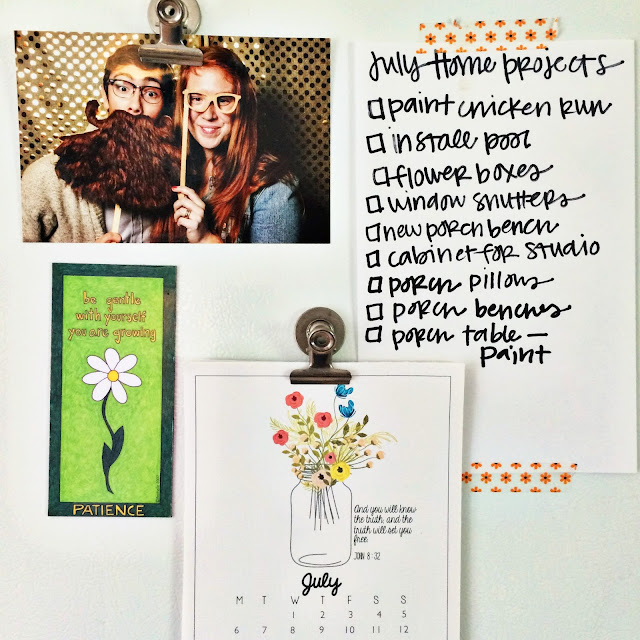 July Home projects
paint chicken run
install pool
flower boxes
window shutters
new porch bench
cabinet for studio
porch pillows
porch benches
porch table —
paint
be gentle
with yourself
you are growing
PATIENCE
And you will know
the truth, and the
truth will set you
free.
JOHN 8:32
July
M T W T F S S
1 2 3 4 5
6 7 8 9 10 11 12